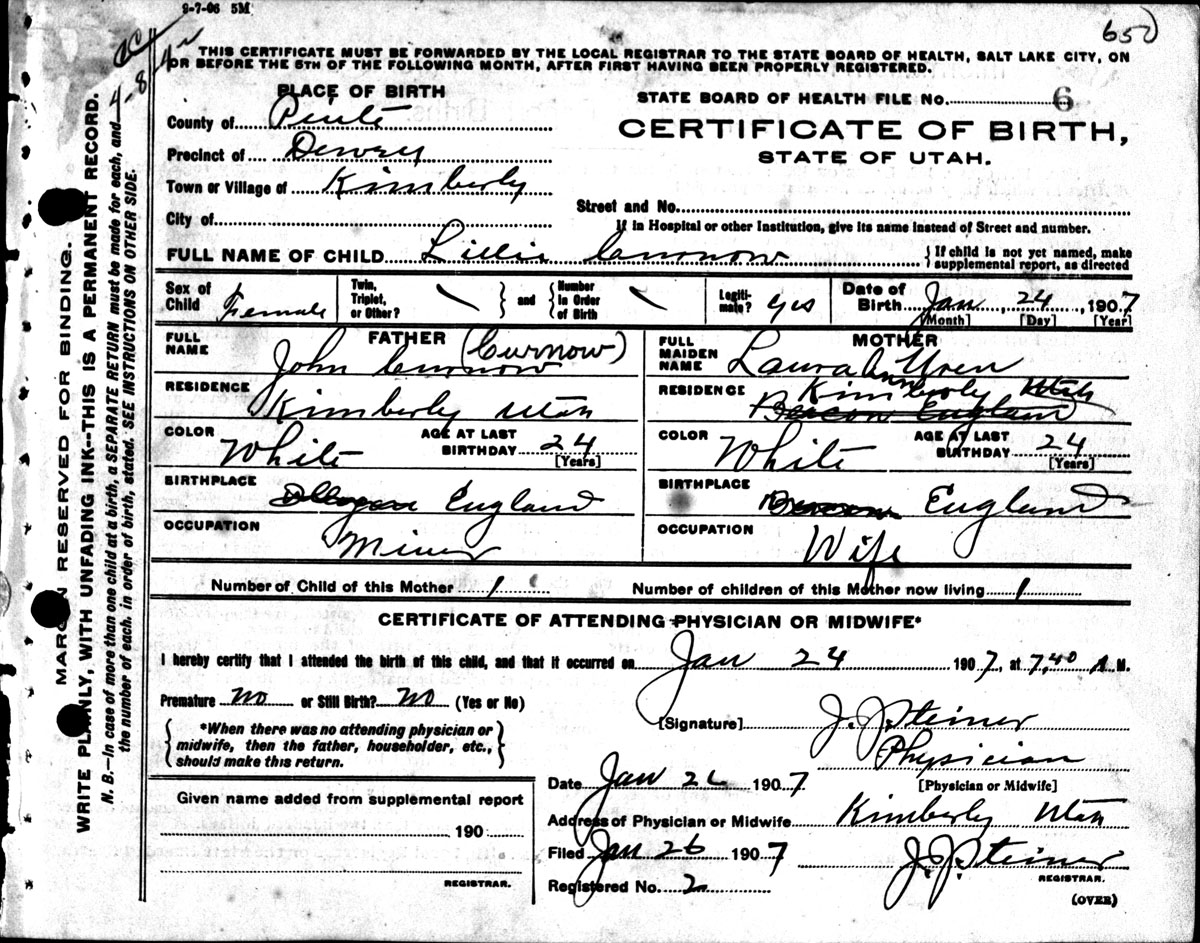 9-7-06 5M
650
THIS CERTIFICATE MUST BE FORWARDED BY THE LOCAL REGISTRAR TO THE STATE BOARD OF HEALTH, SALT LAKE CITY, ON
OR BEFORE THE 5TH OF THE FOLLOWING MONTH, AFTER FIRST HAVING BEEN PROPERLY REGISTERED.
MARGIN RESERVED FOR BINDING.
WRITE PLAINLY, WITH UNFADING INK--THIS IS A PERMANENT RECORD.
N. B.—In case of more than one child at a birth, a SEPARATE RETURN must be made for each, and
the number of each, in order of birth, stated. SEE INSTRUCTIONS ON OTHER SIDE.
PLACE OF BIRTH
STATE BOARD OF HEALTH FILE No. 6
County of Piute
CERTIFICATE OF BIRTH,
STATE OF UTAH.
Precinct of Dewey
Town or Village of Kimberly
Street and No.
City of
If in Hospital or other Institution, give its name instead of Street and number.
FULL NAME OF CHILD Lillie Curnow
{If child is not yet named, make
supplemental report, as directed
Sex of Child Female
Twin, Triplet, or Other? \
} and {
Number in Order of Birth \
Legiti-mate? yes
Date of Birth Jan 24, 1907
[Month] [Day] [Year]
FATHER
FULL NAME John Curnow (Curnow)
MOTHER
FULL MAIDEN NAME Laura Ann Uren
RESIDENCE Kimberly Utah
RESIDENCE Kimberly Utah
Beacon England
COLOR White
AGE AT LAST BIRTHDAY 24 [Years]
COLOR White
AGE AT LAST BIRTHDAY 24 [Years]
BIRTHPLACE England
BIRTHPLACE England
OCCUPATION Miner
OCCUPATION Wife
Number of Child of this Mother 1
Number of children of this Mother now living 1
CERTIFICATE OF ATTENDING PHYSICIAN OR MIDWIFE*
I hereby certify that I attended the birth of this child, and that it occurred on Jan 24 1907, at 7,40 A.M.
Premature no or Still Birth? no (Yes or No)
[Signature] J. J. Steiner
{ *When there was no attending physician or
midwife, then the father, householder, etc.,
should make this return. }
Physician
[Physician or Midwife]
Date Jan 26 1907
Given name added from supplemental report
190
REGISTRAR.
Address of Physician or Midwife Kimberly Utah
Filed Jan 26 1907 J. J. Steiner
REGISTRAR.
Registered No. 2
(OVER)